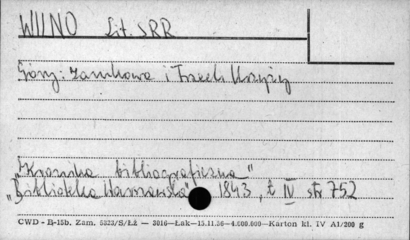 WILNO Lit. SRR
Góry: Zamkowa i Trzech Krzyży
"Kronika bibliograficzna"
"Biblioteka Warszawska" 1843, t. IV str 752
CWD - B-15b. Zam. 5323/S/ŁŻ — 3016—Łak—15.11.56—4.000.000—Karton kl. IV A1/200 g